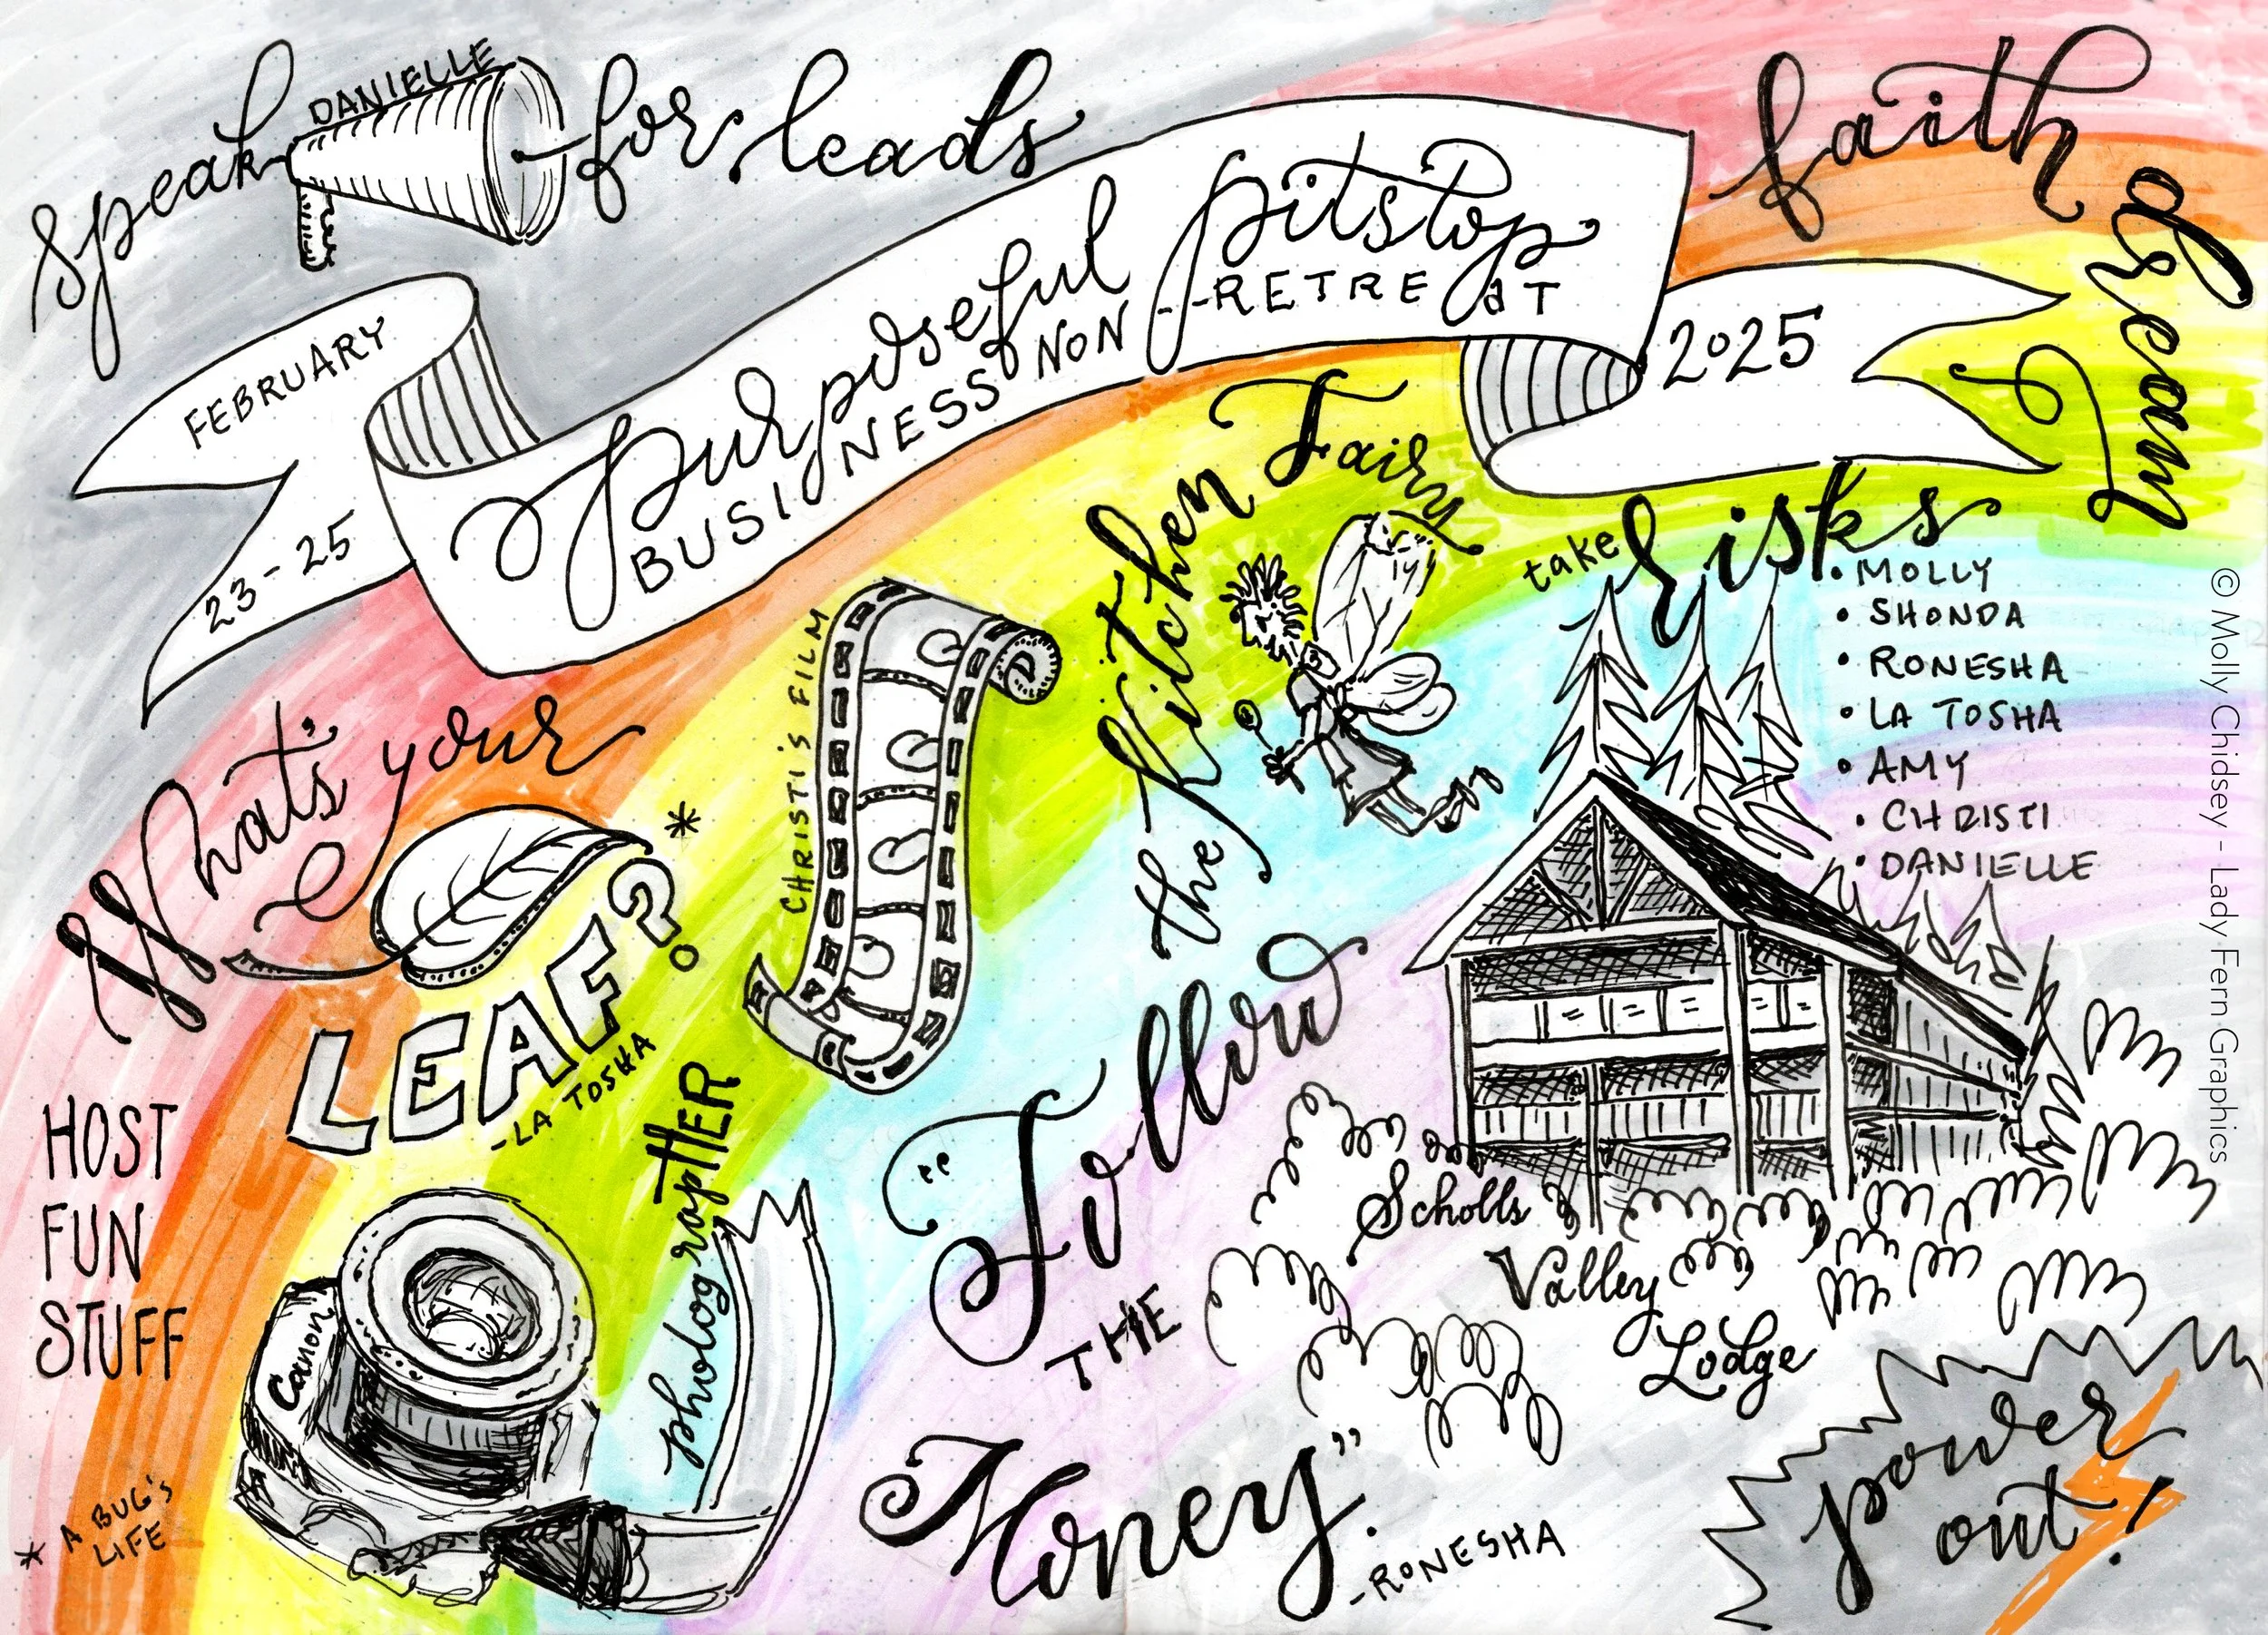 speak
DANIELLE
for leads
faith
dream
FEBRUARY
23-25
purposeful pitstop
BUSINESS NON--RETREaT
2025
the kitchen Fairy
take risks
• MOLLY
• SHONDA
• RONESHA
• LA TOSHA
• AMY
• CHRISTI
• DANIELLE
CHRISTI'S FILM
What's your
LEAF?*
-LA TOSHA
HOST
FUN
STUFF
photograpHER
Canon
* A BUG'S
LIFE
"Follow
THE
Honey".
-RONESHA
Scholls
Valley
Lodge
power
out!
© Molly Chidsey - Lady Fern Graphics